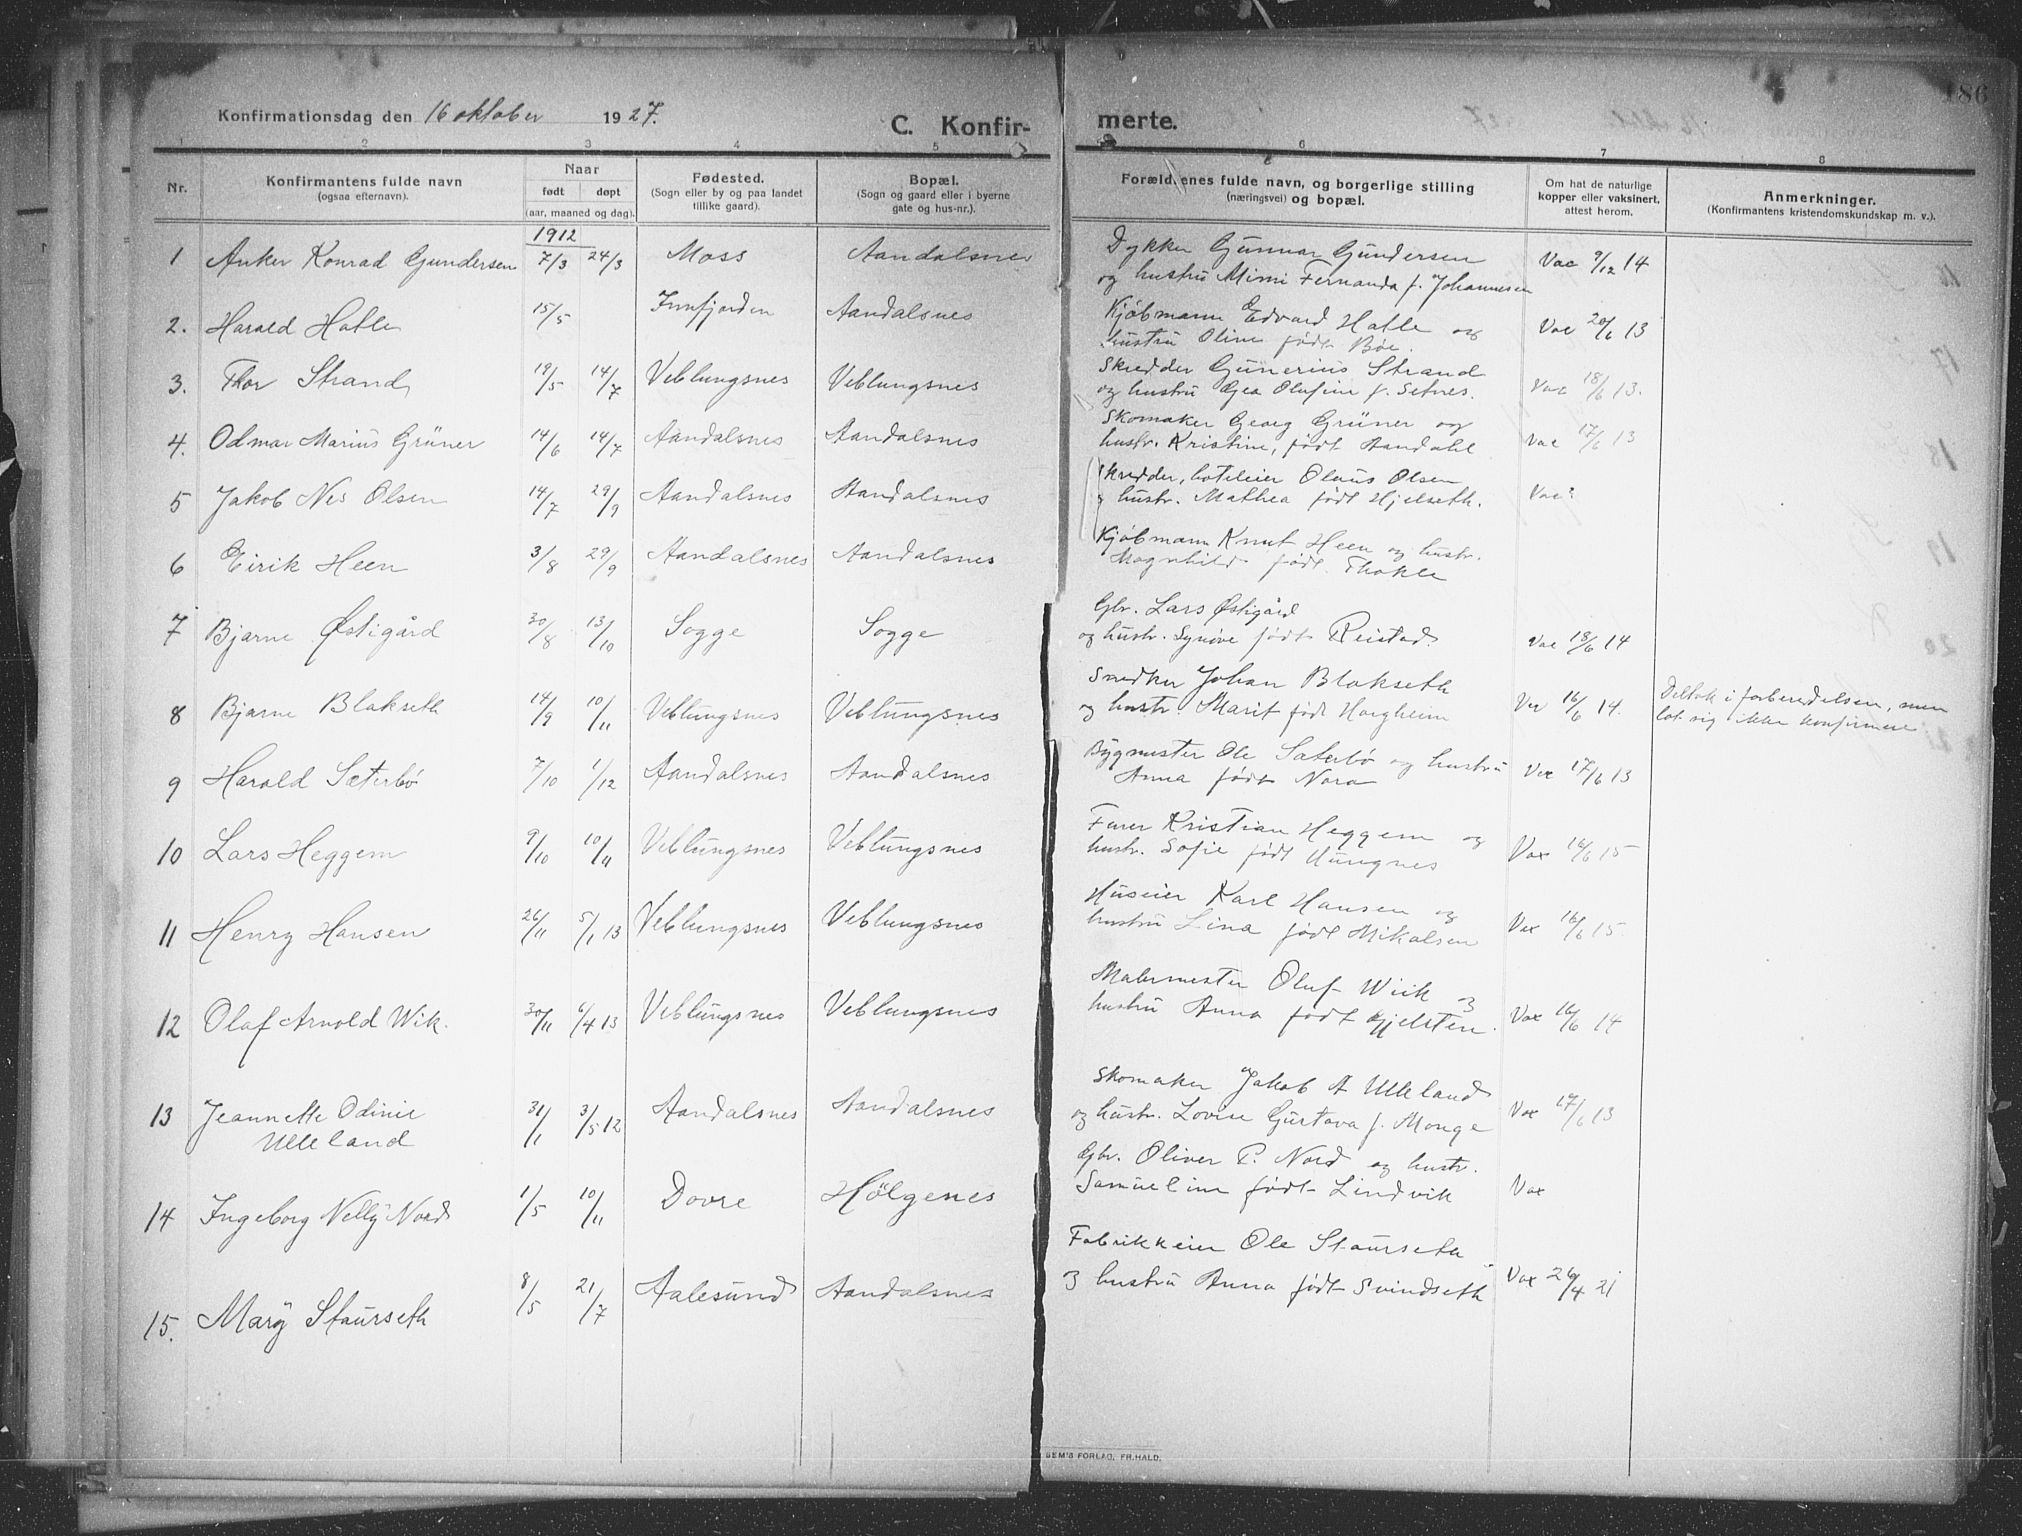 186
Konfirmationsdag den 16 oktober 1927.
C. Konfirmerte.
1 2 3 4 5 6 7 8
Nr.
Konfirmantens fulde navn
(ogsaa efternavn).
Naar
født døpt
(aar, maaned og dag).
Fødested.
(Sogn eller by og paa landet
tillike gaard).
Bopæl.
(Sogn og gaard eller i byerne
gate og hus-nr.).
Forældrenes fulde navn, og borgerlige stilling
(næringsvei) og bopæl.
Om hat de naturlige
kopper eller vaksinert,
attest herom.
Anmerkninger.
(Konfirmantens kristendomskundskap m. v.).
1912
1 Anker Konrad Gundersen 7/3 24/3 Moss Aandalsnes Dykker Gunnar Gundersen Vac 9/12 14
og hustru Mimi Fernanda f. Johannesen
2. Harald Hatle 15/5 Innfjorden Aandalsnes Kjøbmann Edvard Hatle og Vac 20/6 13
hustru Oline født Bøe.
3. Thor Strand 19/5 14/7 Veblungsnes Veblungsnes Skredder Gunerius Strand Vac 18/6 13.
og hustru Gea Olufine f. Setnes.
4. Odmar Marius Grüner 14/6 14/7 Aandalsnes Aandalsnes Skomaker Georg Grüner og Vac 17/6 13
hustr. Kristine, født Aandahl
5 Jakob Nes Olsen 14/7 29/9 Aandalsnes Aandalsnes Skredder, hoteleier Olaus Olsen Vac?
og hustr. Mathea født Hjelseth.
6 Eirik Heen 3/8 29/9 Aandalsnes Aandalsnes Kjøbmann Knut Heen og hustr.
Magnhild født Thokle
7 Bjarne Østigård 30/8 13/10 Sogge Sogge Gbr. Lars Østigård
og hustr. Synøve født Reistad. Vac 18/6 14
8 Bjarne Blakseth 14/9 10/11 Veblungsnes Veblungsnes Snedker Johan Blakseth Vac 16/6 14. Deltok i forberedelsen, men
og hustr. Marit født Horgheim lot sig ikke konfirmere
9 Harald Sæterbø 7/10 1/12 Aandalsnes Aandalsnes Bygmester Ole Sæterbø og hustru Vac 17/6 13
Anna født Nora
10 Lars Heggem 9/10 10/11 Veblungsnes Veblungsnes Furer Kristian Heggem og Vax 16/6 15
hustr. Sofie født Hungnes
11 Henry Hansen 26/11 5/1 13 Veblungsnes Veblungsnes Huseier Karl Hansen og Vax 16/6 15.
hustru Lina født Mikalsen
12 Olaf Arnold Wik. 30/11 6/4 13 Veblungsnes Veblungsnes Malermester Oluf Wiik og Vax 16/6 14
hustru Anna født Gjelsten.
13 Jeannette Odinie 31/1 3/5 12 Aandalsnes Aandalsnes Skomaker Jakob A Ulleland Vax 17/6 13
Ulleland og hustr. Lovise Gustava f. Monge
14 Ingeborg Nelly Nord 1/5 10/11 Dovre Hølgenes Gbr. Oliver P. Nord og hustr. Vax
Samueline født Lindvik
15. Mary Staurseth 8/5 21/7 Aalesund Aandalsnes Fabrikkeier Ole Staurseth
og hustru Anna født Svindseth Vax 26/4 21
SEM'S FORLAG, FR.HALD.